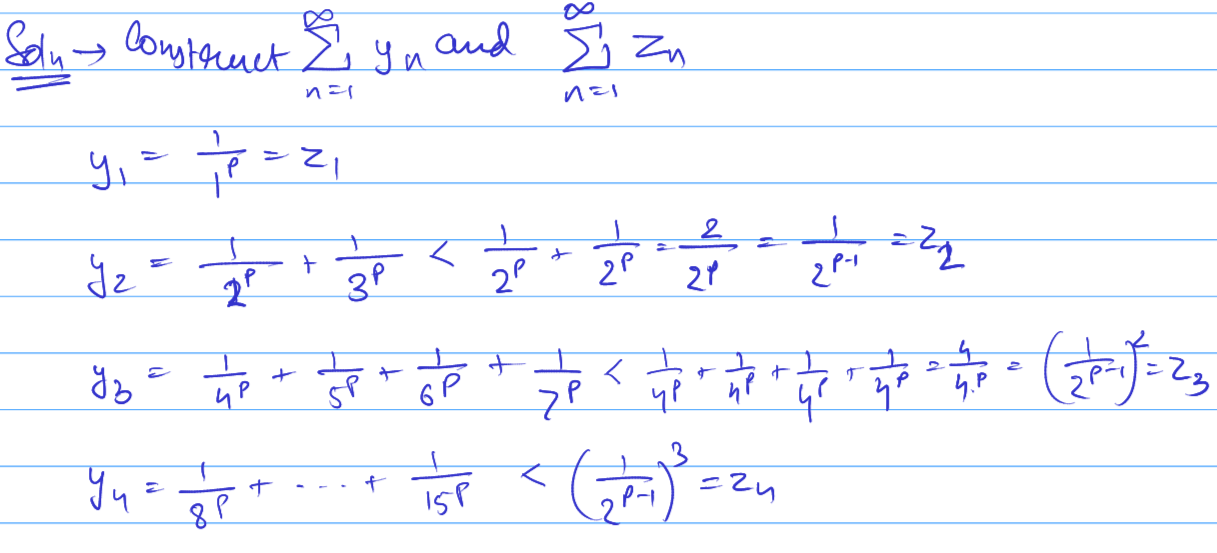 Soln → Construct ∑_{n=1}^{∞} y_n and ∑_{n=1}^{∞} z_n
y_1 = 1/1^p = z_1
y_2 = 1/2^p + 1/3^p < 1/2^p + 1/2^p = 2/2^p = 1/2^{p-1} = z_2
y_3 = 1/4^p + 1/5^p + 1/6^p + 1/7^p < 1/4^p + 1/4^p + 1/4^p + 1/4^p = 4/4^p = (1/2^{p-1})^2 = z_3
y_4 = 1/8^p + ---- + 1/15^p < (1/2^{p-1})^3 = z_4